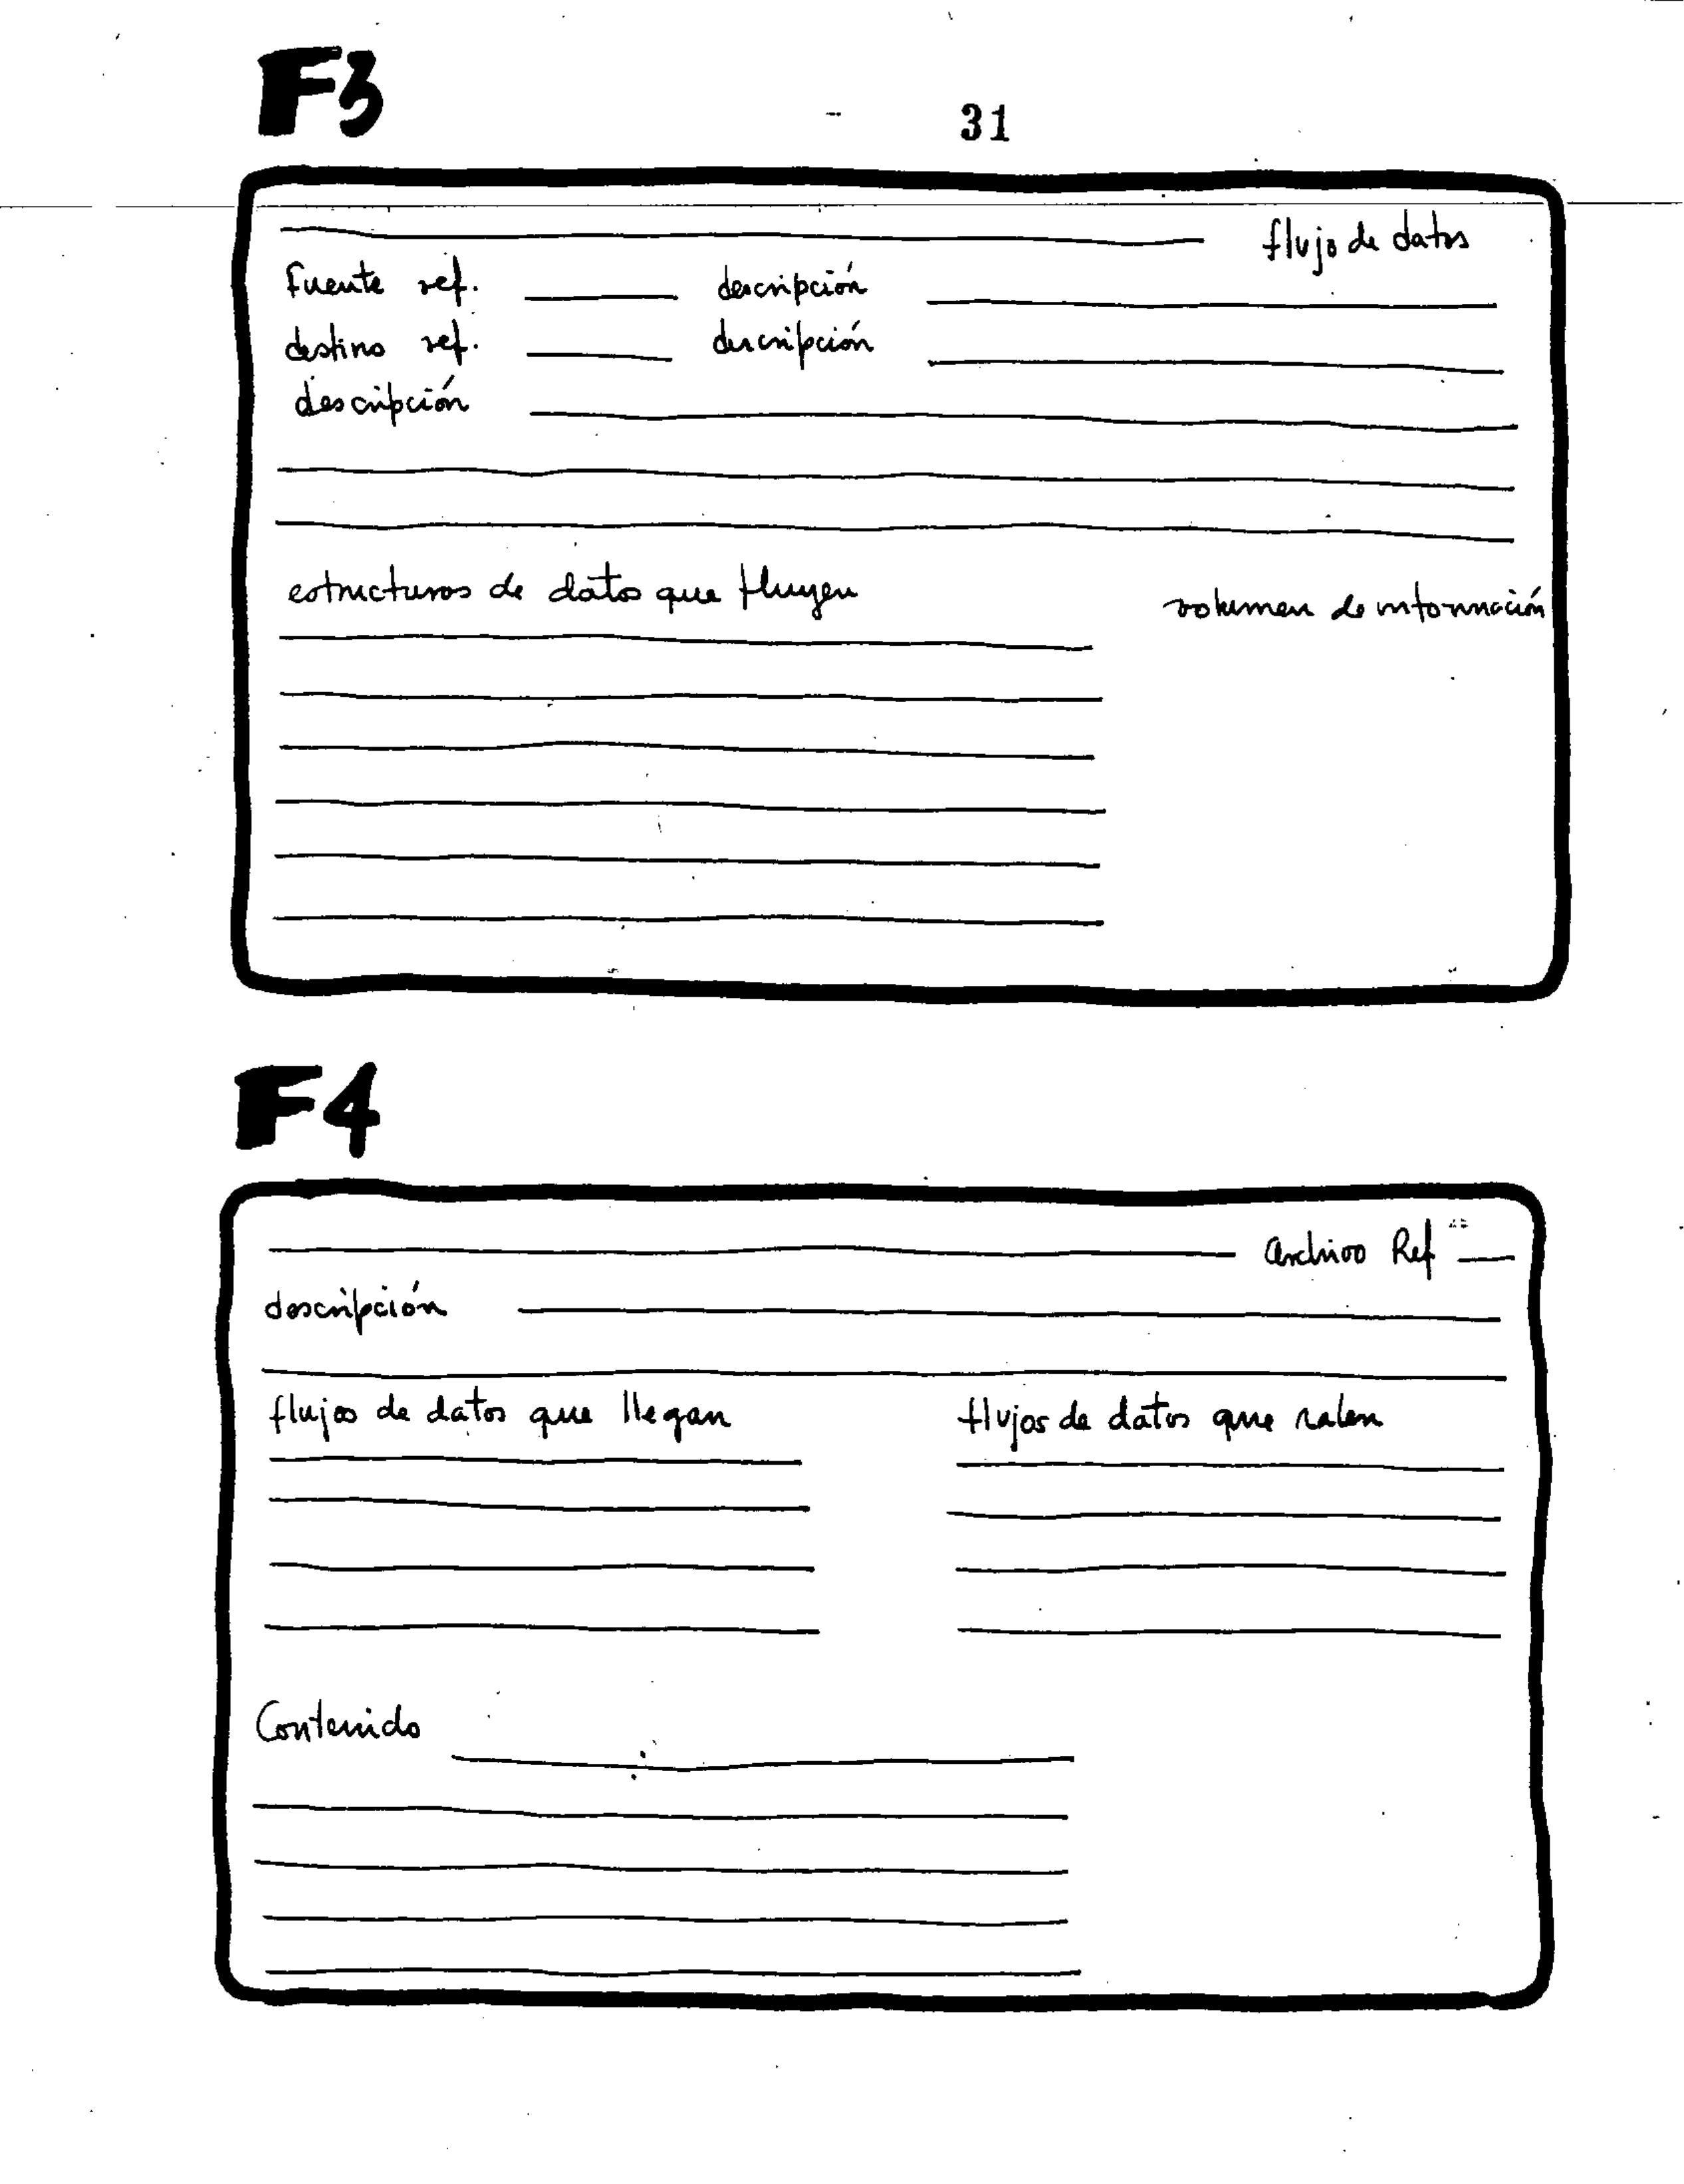 F3
31
flujo de datos
Fuente ref. descripción
destino ref. descripción
descripción
estructuras de datos que fluyen volumen de información
F4
Archivo Ref
descripción
flujos de datos que llegan flujos de datos que salen
Contenido